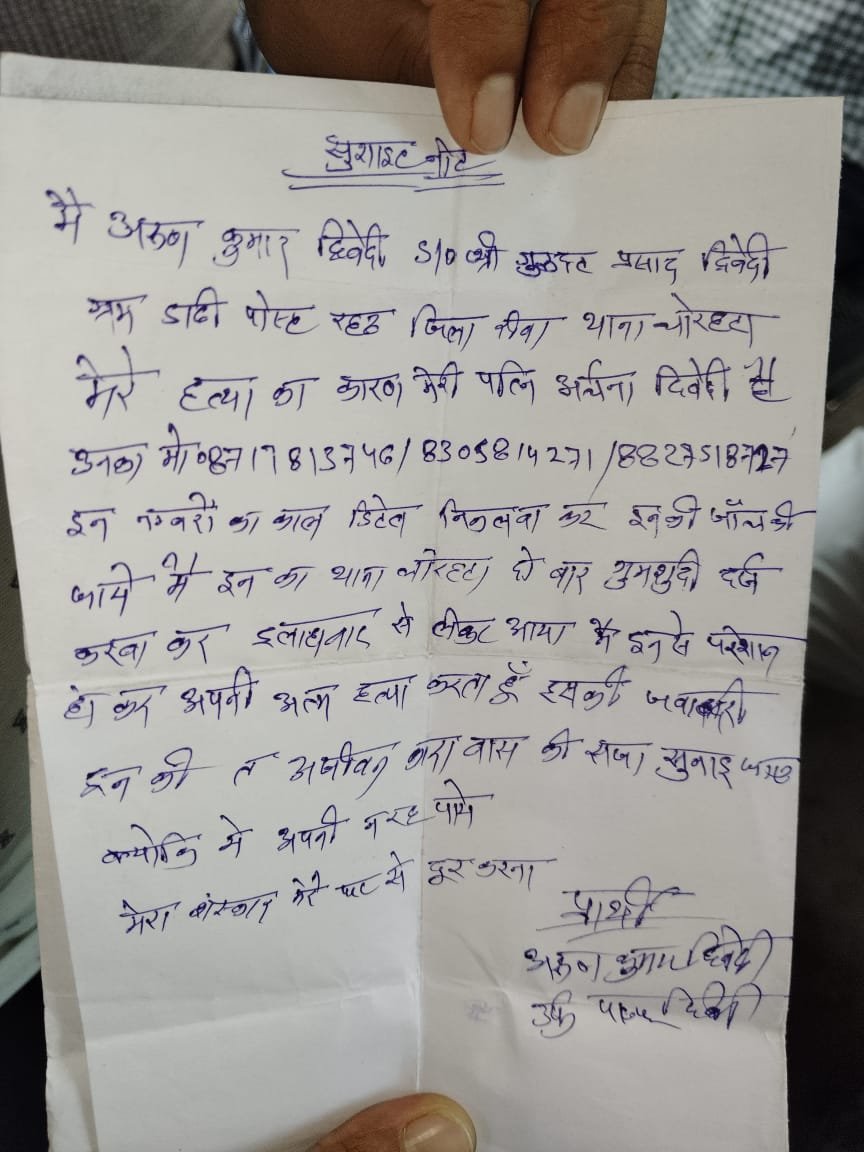 सुसाइट नोट
मै अरूण कुमार द्विवेदी S/O श्री गुरूदत्त प्रसाद द्विवेदी
ग्राम डाढी पोस्ट रहट जिला रीवा थाना चोरहटा
मेरे हत्या का कारण मेरी पत्नि अर्चना दिवेदी है
उनका मो०8717813746/8305814271/8827518727
इन नम्बरों का काल डिटेल निकलवा कर इनकी जाँच की
जाये मै इन का थाना चोरहटा दो बार गुमशुदी दर्ज
करवा कर इलाहाबाद से लेकर आया मै इनसे परेशान
हो कर अपनी आत्म हत्या करता हूँ इसकी
इन की त अजीवन कारावास की सजा सुनाइ जाय
क्योकि मे अपनी
मेरा संस्कार मेरे घर से दूर करना
प्रार्थी
अरूण कुमार द्विवेदी
उर्फ द्विवेदी